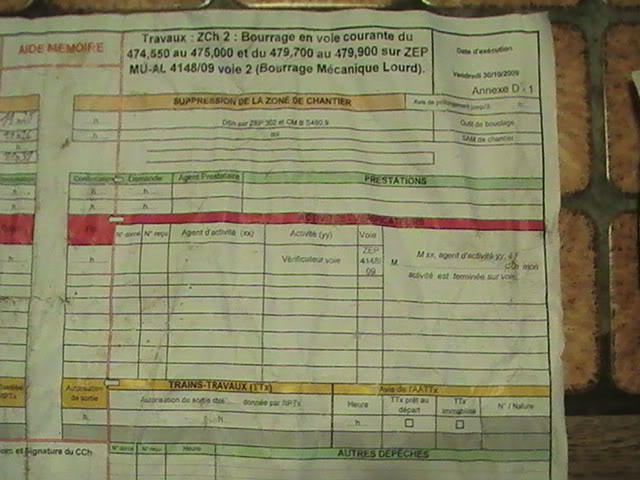 AIDE MEMOIRE
Travaux : ZCh 2 : Bourrage en voie courante du
474,550 au 475,000 et du 479,700 au 479,900 sur ZEP
MU-AL 4148/09 voie 2 (Bourrage Mécanique Lourd).
Date d'exécution
Vendredi 30/10/2009
Annexe D - 1
SUPPRESSION DE LA ZONE DE CHANTIER
Avis de prolongement jusqu'à h
h
Outil de bouclage
h
SAM de chantier
h
Demande Agent Prestataire PRESTATIONS
h h
h h
N° donné N° reçu Agent d'activité (xx) Activité (yy) Voie
h Vérificateur voie ZEP 4148/09
M. M xx, agent d'activité yy, mon
activité est terminée sur voie
Autorisation de sortie TRAINS-TRAVAUX (TTx) Avis de l'AATTx
Autorisation de sortie donnée par
Heure TTx prêt au départ TTx immobilité N° / Nature
h h h
et Signature du CCh
N° donné N° reçu Heure AUTRES DÉPÊCHES